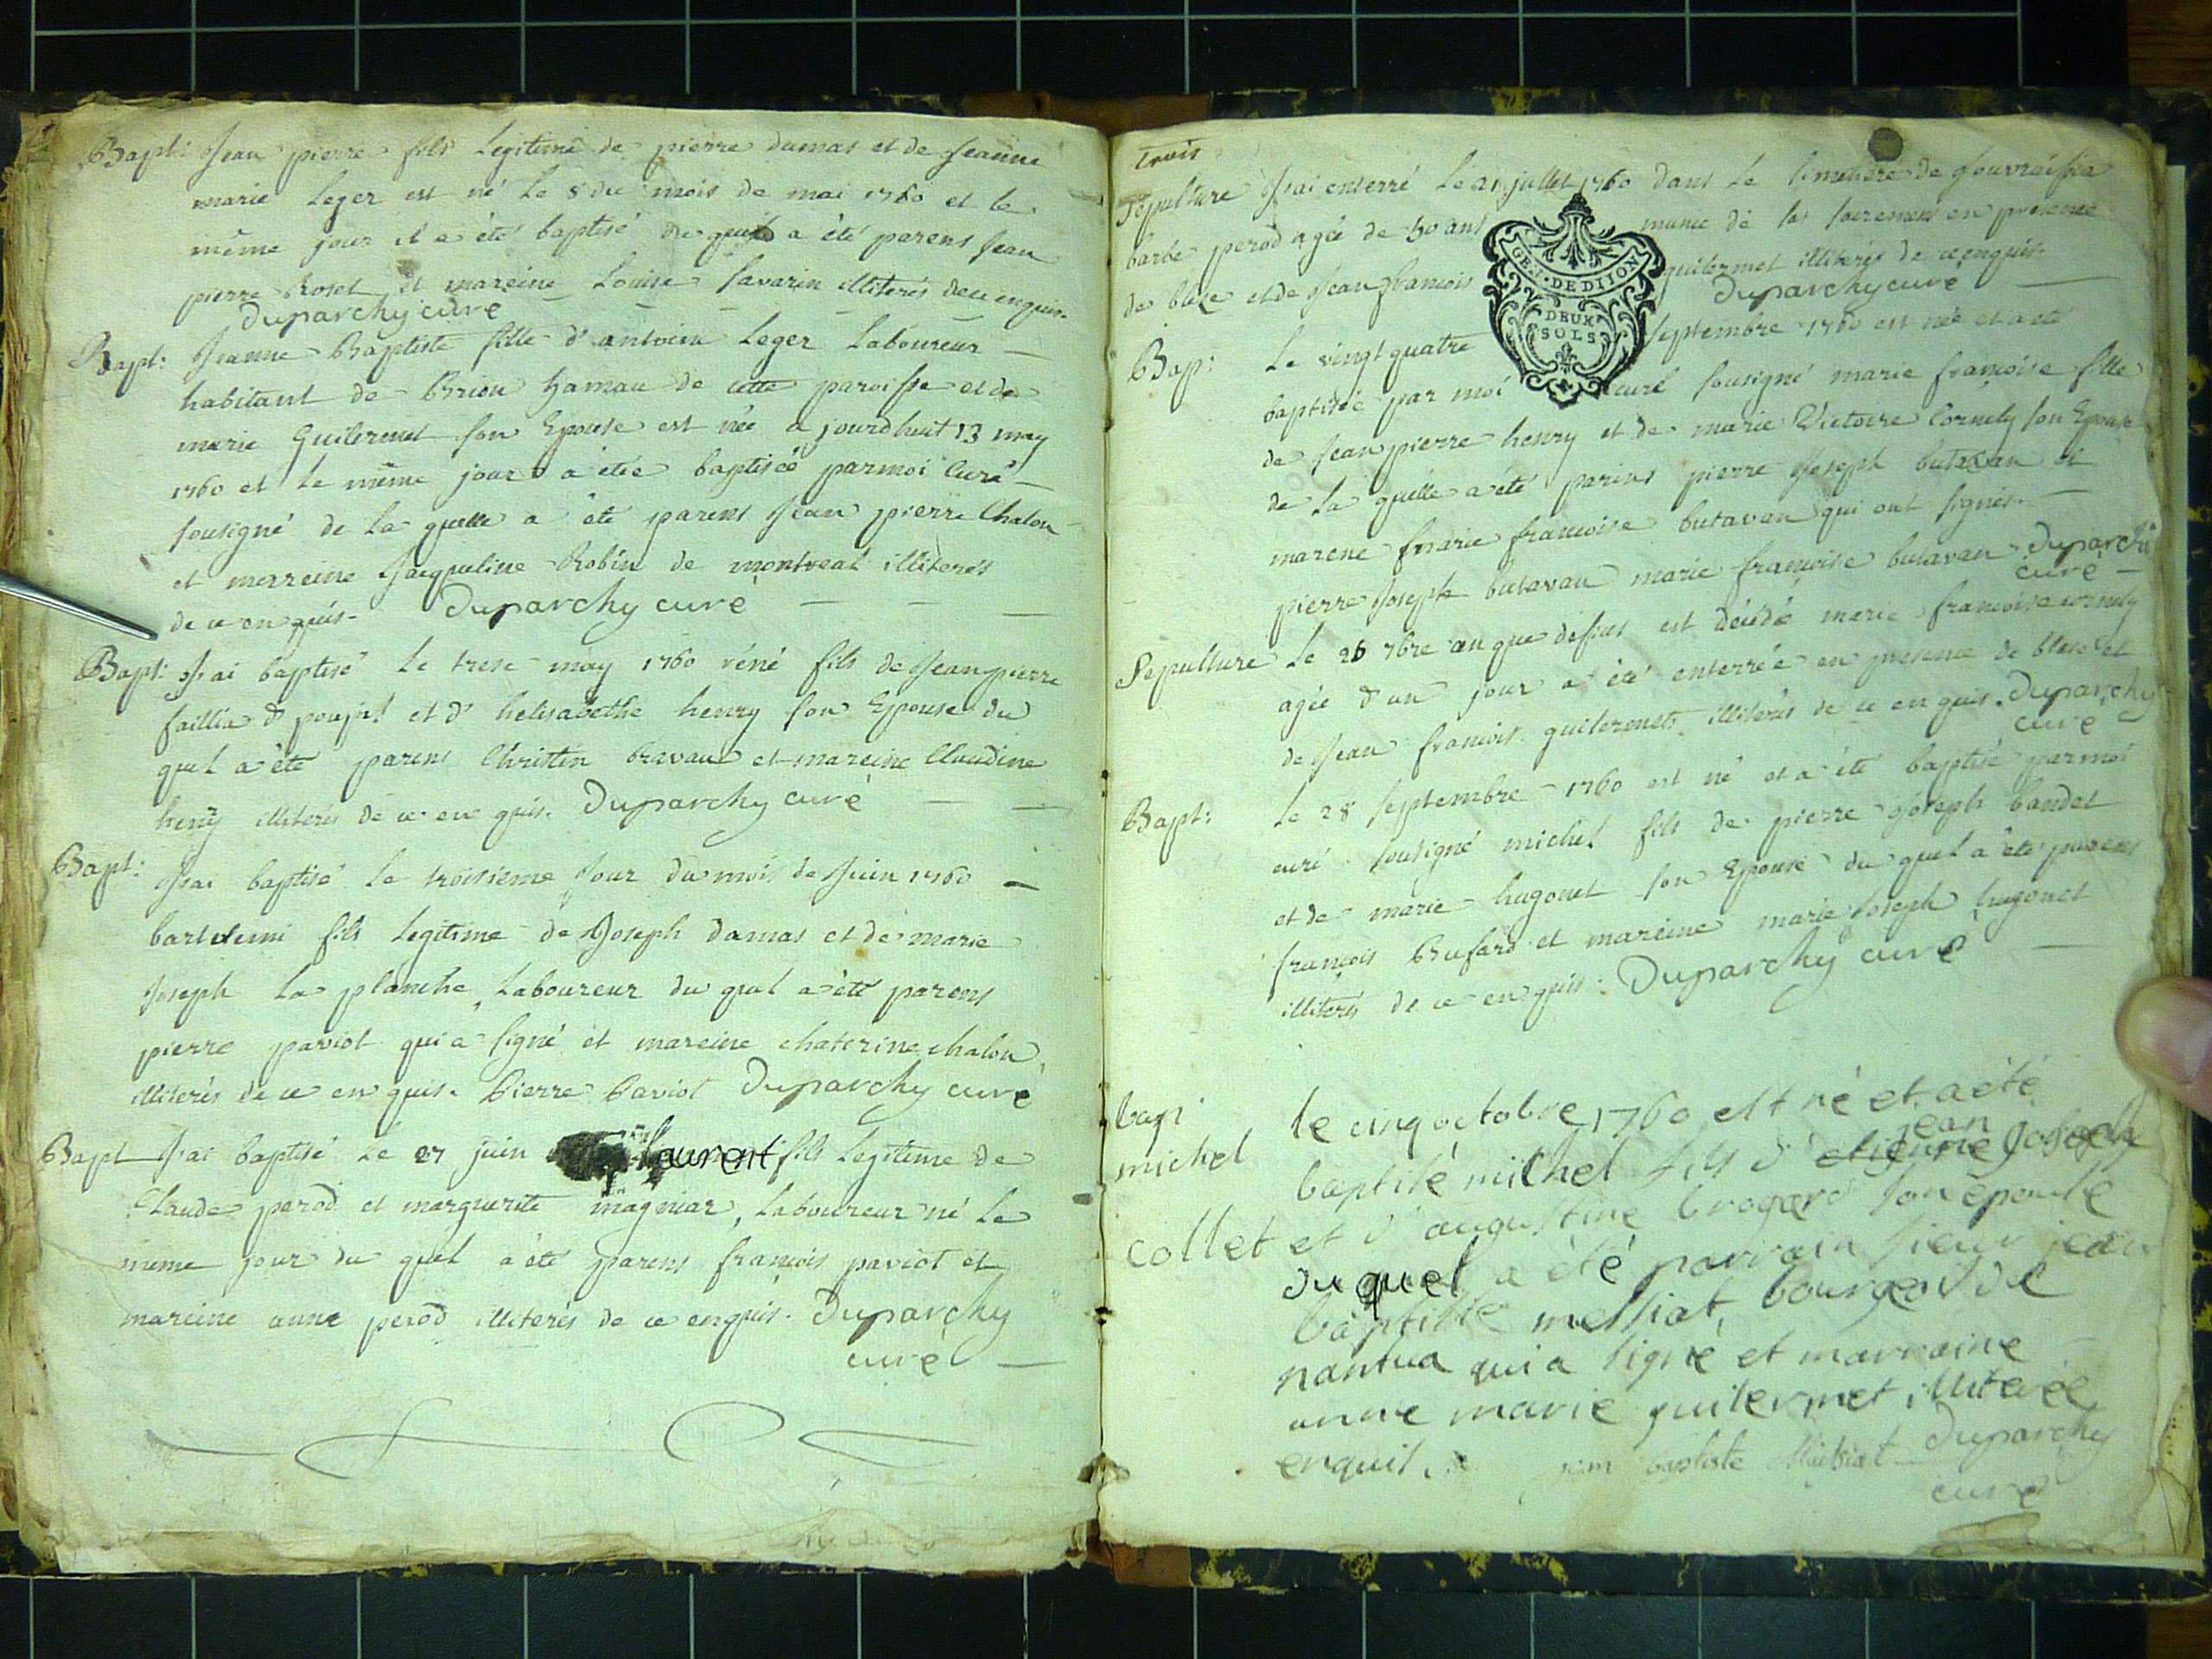 Bapt: Jean pierre fils Legitime de pierre dumas et de Jeanne
marie Leger est né le 8 du mois de mai 1760 et le
même jour il a été baptisé du quel a été parens Jean
pierre Roset et mareine Louise Savarin illiterés de ce enquis.
Duparchy curé
Bapt: Jeanne Baptiste fille d'antoine Leger Laboureur
habitant de Brion hamau de cette paroisse et de
marie Guilermet son Epouse est née a jourdhuit 13 may
1760 et le même jour a étée baptiséé parmoi Curé
sousigné de la quelle a été parens Jean pierre Chalon
et mareine Jacqueline Robin de montreal illiteres
de ce en quis. Duparchy curé
Bapt: J'ai baptisé le trese may 1760 réné fils de Jean pierre
faillia d poujat et d' helisabethe henry son Epouse du
quel a été parens Christin bravand et mareine Claudine
heny illiterés de ce en quis. Duparchy curé
Bapt: J'ai baptisé le troisieme Jour du mois de Juin 1760
bartelemi fils legitime de Joseph damas et de marie
Joseph La planche Laboureur du quel a été parens
pierre paviot qui a signé et mareine chaterine chalon
illiterés de ce en quis. Pierre Paviot Duparchy curé
Bapt J'ai baptisé le 27 juin laurent fils Legitime de
Claude perod et marguerite magniar, Laboureur né le
meme jour du quel a été parens françois paviot et
mareine anne perod illiterés de ce enquis. Duparchy
curé
trois
Sepulture J'ai enterré le 21 juillet 1760 dans le simetiere de
barbe perod agée de 50 ans munie de sacremens en presence
de blaze et de Jean francois guilermet illiterés de ce enquis.
Duparchy curé
GEN. DE DIJON
DEUX
SOLS
Bap: Le vingt quatre Septembre 1760 est née et a été
baptisée par moi curé sousigné marie françoise fille
de Jean pierre henry et de marie Victoire Cornely son Epouse
de la quelle a été parins pierre Joseph butavan et
marene marie francoise butavan qui ont signés.
pierre Joseph butavan marie françoise butavan Duparchy
curé
Sepulture Le 26 7bre an que dessus est décédé marie francoise cornely
agée d'un jour a été enterrée en presence de blese et
de Jean francois guilermet illiterés de ce en quis. Duparchy
curé
Bapt: Le 28 Septembre 1760 est né et a été baptisé parmoi
curé sousigné michel fils de pierre joseph baudet
et de marie hugonet son Epouse du quel a été parens
françois Bufard et mareine marie Joseph hugonet
illiterés de ce en quis: Duparchy curé
bapt le cinq octobre 1760 est né et a été
jean
michel baptisé michel fils d' etienne Joseph
collet et d'augustine brogard son épouse
du quel a été parrain sieur jean
baptiste melliat, bourgeois de
nantua qui a signé et marraine
anne marie guilermet illiterée
enquis. jean baptiste Duparchy
curé